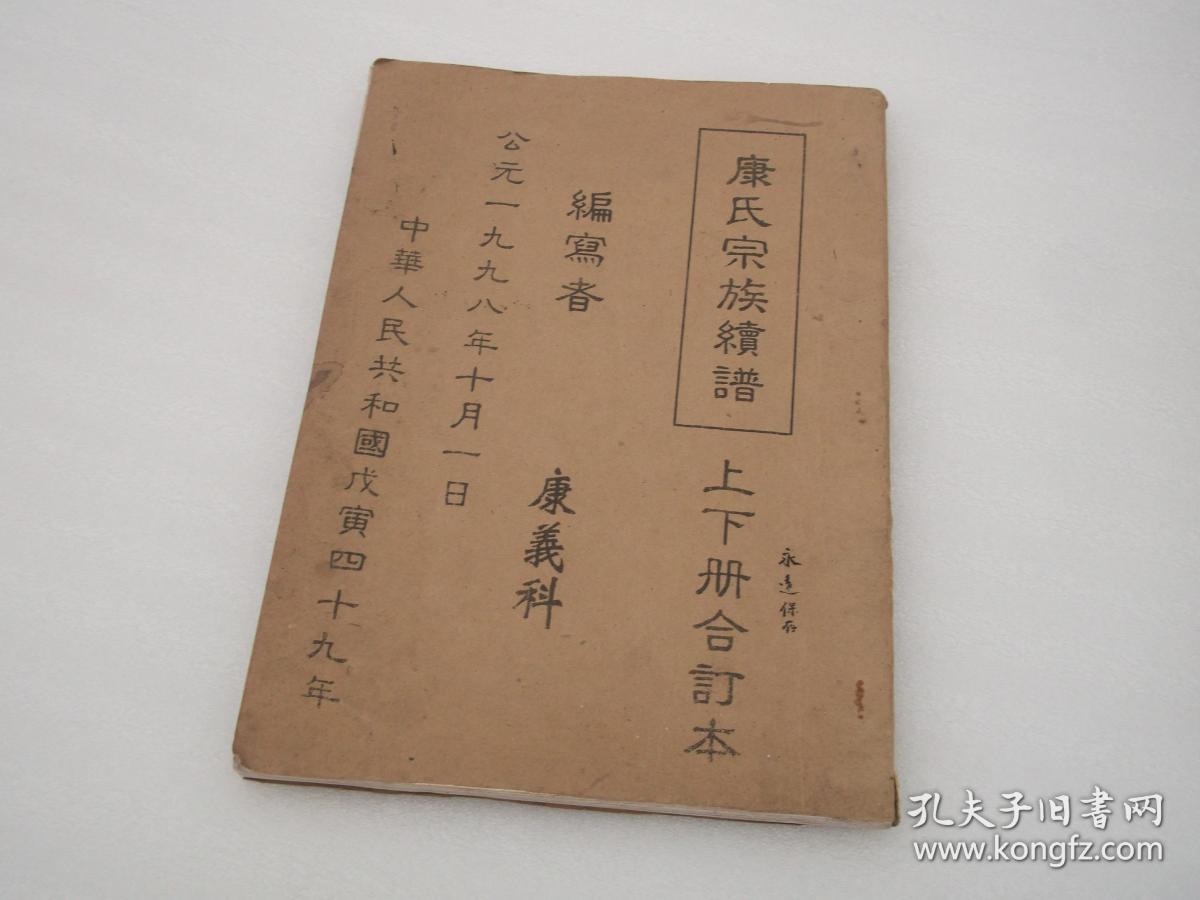 康氏宗族續譜
上下册合訂本
永遠保存
編寫者
康義科
公元一九九八年十月一日
中華人民共和國戊寅四十九年
孔夫子旧书网
www.kongfz.com